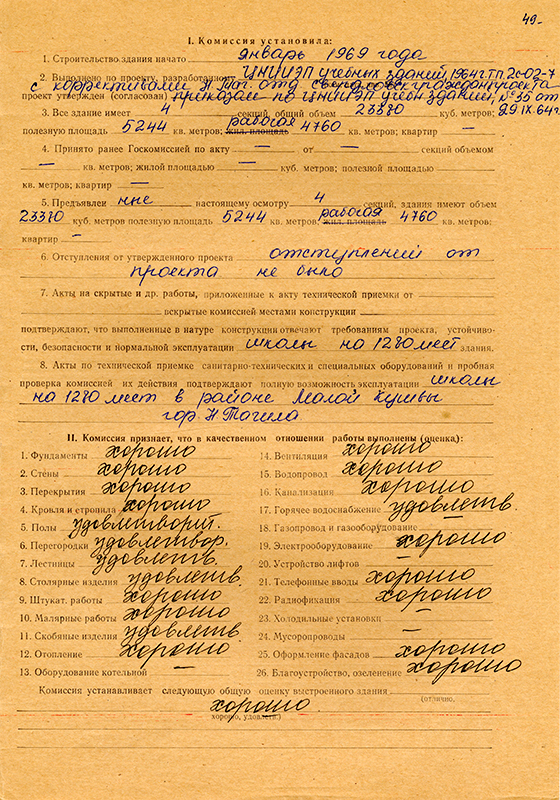 49-
I. Комиссия установила:
1. Строительство здания начато январь 1969 года
2. Выполнено по проекту, разработанному ЦНИИЭП учебных зданий, 1964г. Т.П. 2с-02-7
с коррективами Н Таг. отд. Свердловскгражданпроекта
проект утвержден (согласован) приказом по ЦНИИЭП учебн зданий, №35 от
29 IX.64г.
3. Все здание имеет 4 секций, общий объем 23380 куб. метров;
полезную площадь 5244 кв. метров; жил. площадь рабочая 4760 кв. метров; квартир —
4. Принято ранее Госкомиссией по акту — от — секций объемом
— кв. метров; жилой площадью — кв. метров; полезной площадью
кв. метров; квартир —
5. Предъявлен ные настоящему осмотру 4 секций, здания имеют объем
23380 куб. метров полезную площадь 5244 кв. метров; жил. площадь рабочая 4760 кв. метров;
квартир —
6. Отступления от утвержденного проекта отступлений от
проекта не было
7. Акты на скрытые и др. работы, приложенные к акту технической приемки от
вскрытые комиссией местами конструкции
подтверждают, что выполненные в натуре конструкции отвечают требованиям проекта, устойчиво-
сти, безопасности и нормальной эксплуатации школы на 1280 мест здания.
8. Акты по технической приемке санитарно-технических и специальных оборудований и пробная
проверка комиссией их действия подтверждают полную возможность эксплуатации школы
на 1280 мест в районе Малой Кушвы
гор Н Тагила
II. Комиссия признает, что в качественном отношении работы выполнены (оценка):
1. Фундаменты хорошо
2. Стены хорошо
3. Перекрытия хорошо
4. Кровля и стропила хорошо
5. Полы удовлетворит.
6. Перегородки удовлетвор.
7. Лестницы удовлетв.
8. Столярные изделия удовлетв
9. Штукат. работы хорошо
10. Малярные работы хорошо
11. Скобяные изделия удовлетв
12. Отопление хорошо
13. Оборудование котельной —
14. Вентиляция хорошо
15. Водопровод хорошо
16. Канализация хорошо
17. Горячее водоснабжение удовлетв.
18. Газопровод и газооборудование —
19. Электрооборудование хорошо
20. Устройство лифтов —
21. Телефонные вводы хорошо
22. Радиофикация хорошо
23. Холодильные установки —
24. Мусоропроводы —
25. Оформление фасадов хорошо
26. Благоустройство, озеленение хорошо
Комиссия устанавливает следующую общую оценку выстроенного здания
(отлично,
хорошо
хорошо, удовлетв.)